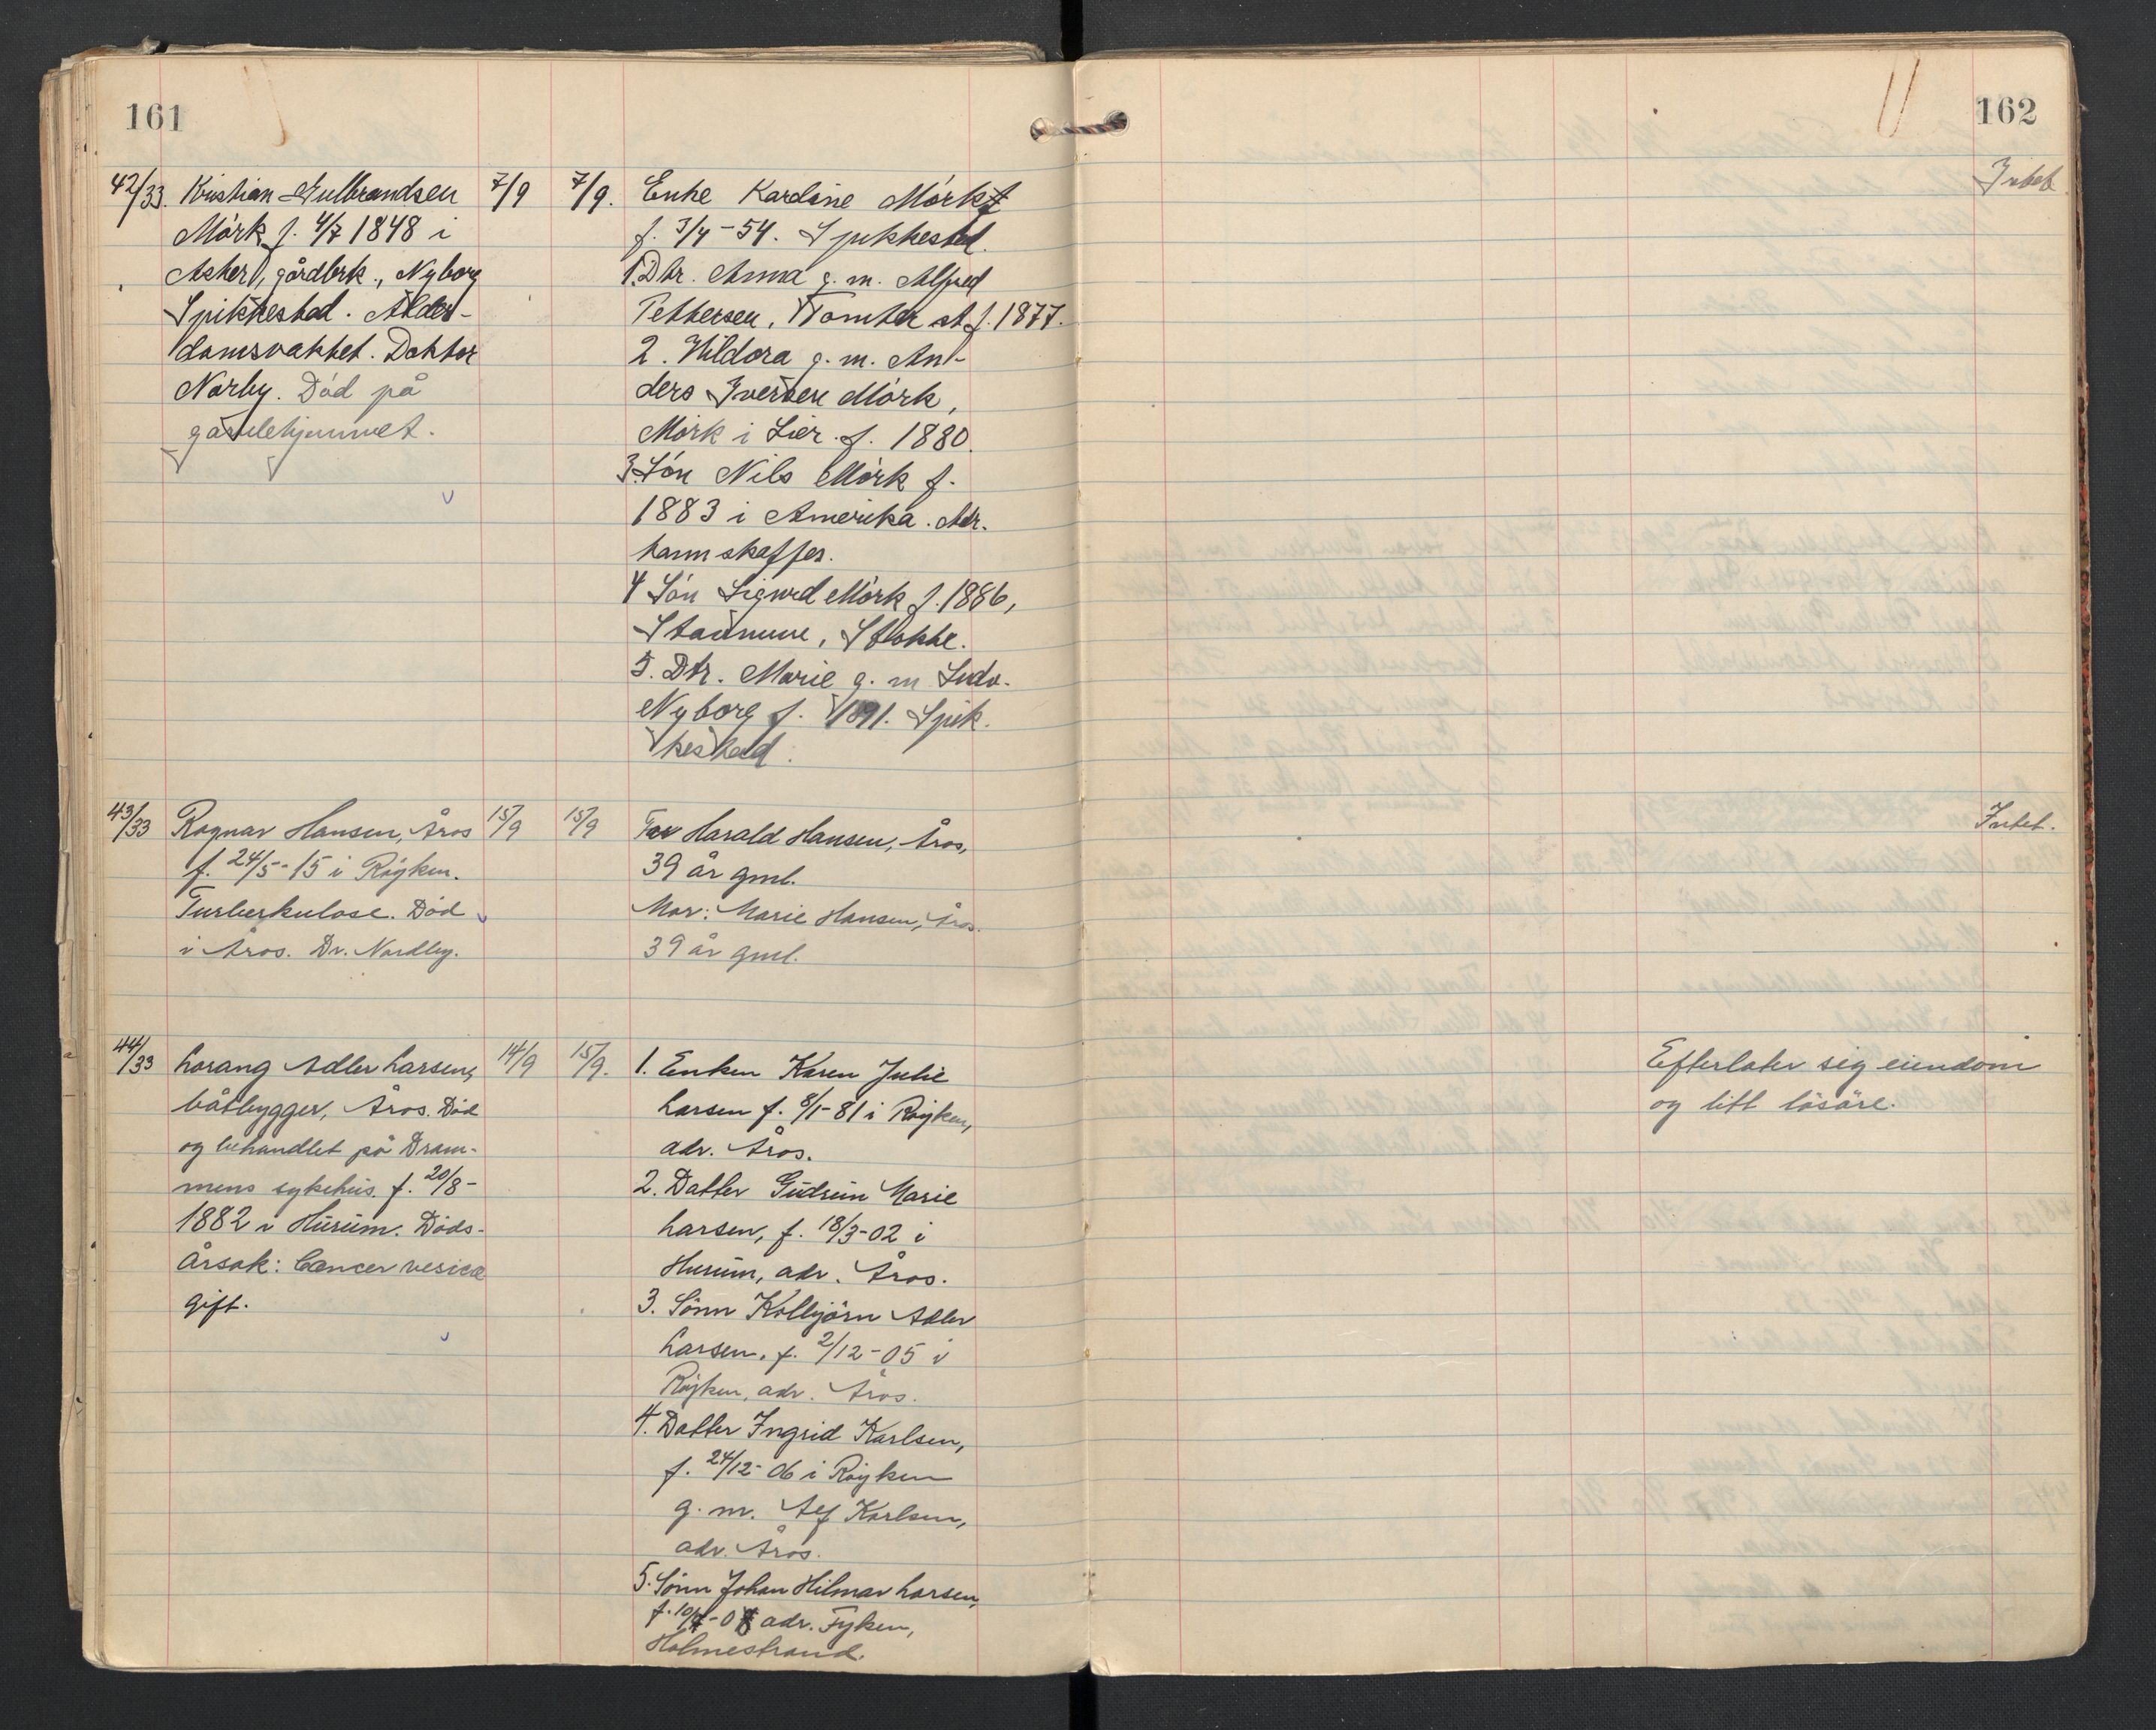 161
42/33. Kristian Gulbrandsen
Mörk f. 4/7 1848 i
Asker, gårdbrk., Nyborg
Spikkestad. Alder-
domsvakhet. Doktor
Norby. Död på
gamlehjemmet.
7/9
7/9.
Enke Kardine Mörk
f. 3/4-54. Spikkestad.
1. Dtr. Anna g. m. Alfred
Pettersen, Tomter st f. 1877.
2. Hildora g. m. An-
ders Iversen Mörk,
Mörk i Lier. f. 1880.
3. Sön Nils Mörk f.
1883 i Amerika. Adr.
kann skaffes.
4 Sön Sigurd Mörk f. 1886,
Stokke.
5. Dtr. Marie g. m Ludv.
Nyborg f. 1891. Spik-
kestad.
43/33 Ragnar Hansen, Åros
f. 24/5-15 i Röyken.
Turberkulose. Död
i Åros. Dr. Nordby.
15/9
15/9
Far Harald Hansen, Åros,
39 år gml.
Mor: Marie Hansen, Åros.
39 år gml.
44/33 Lorang Adler Larsen,
båtbygger, Åros. Död
og behandlet på Dram-
mens sykehus. f. 20/8-
1882 i Hurum. Döds-
årsak: Cancer vesicæ
gift.
14/9
15/9.
1. Enken Karen Julie
Larsen f. 8/1-81 i Röyken,
adr. Åros.
2. Datter Gudrun Marie
Larsen, f. 18/3-02 i
Hurum, adr. Åros.
3. Sönn Kolbjörn Adler
Larsen, f. 2/12-05 i
Röyken, adr. Åros.
4. Datter Ingrid Karlsen,
f. 24/12-06 i Röyken
g. m. Alf Karlsen,
adr. Åros.
5. Sönn Johan Hilmar Larsen,
adr. Fyken,
Holmestrand.
162
Intet
Intet.
Efterlater sig eiendom
og litt lösöre.